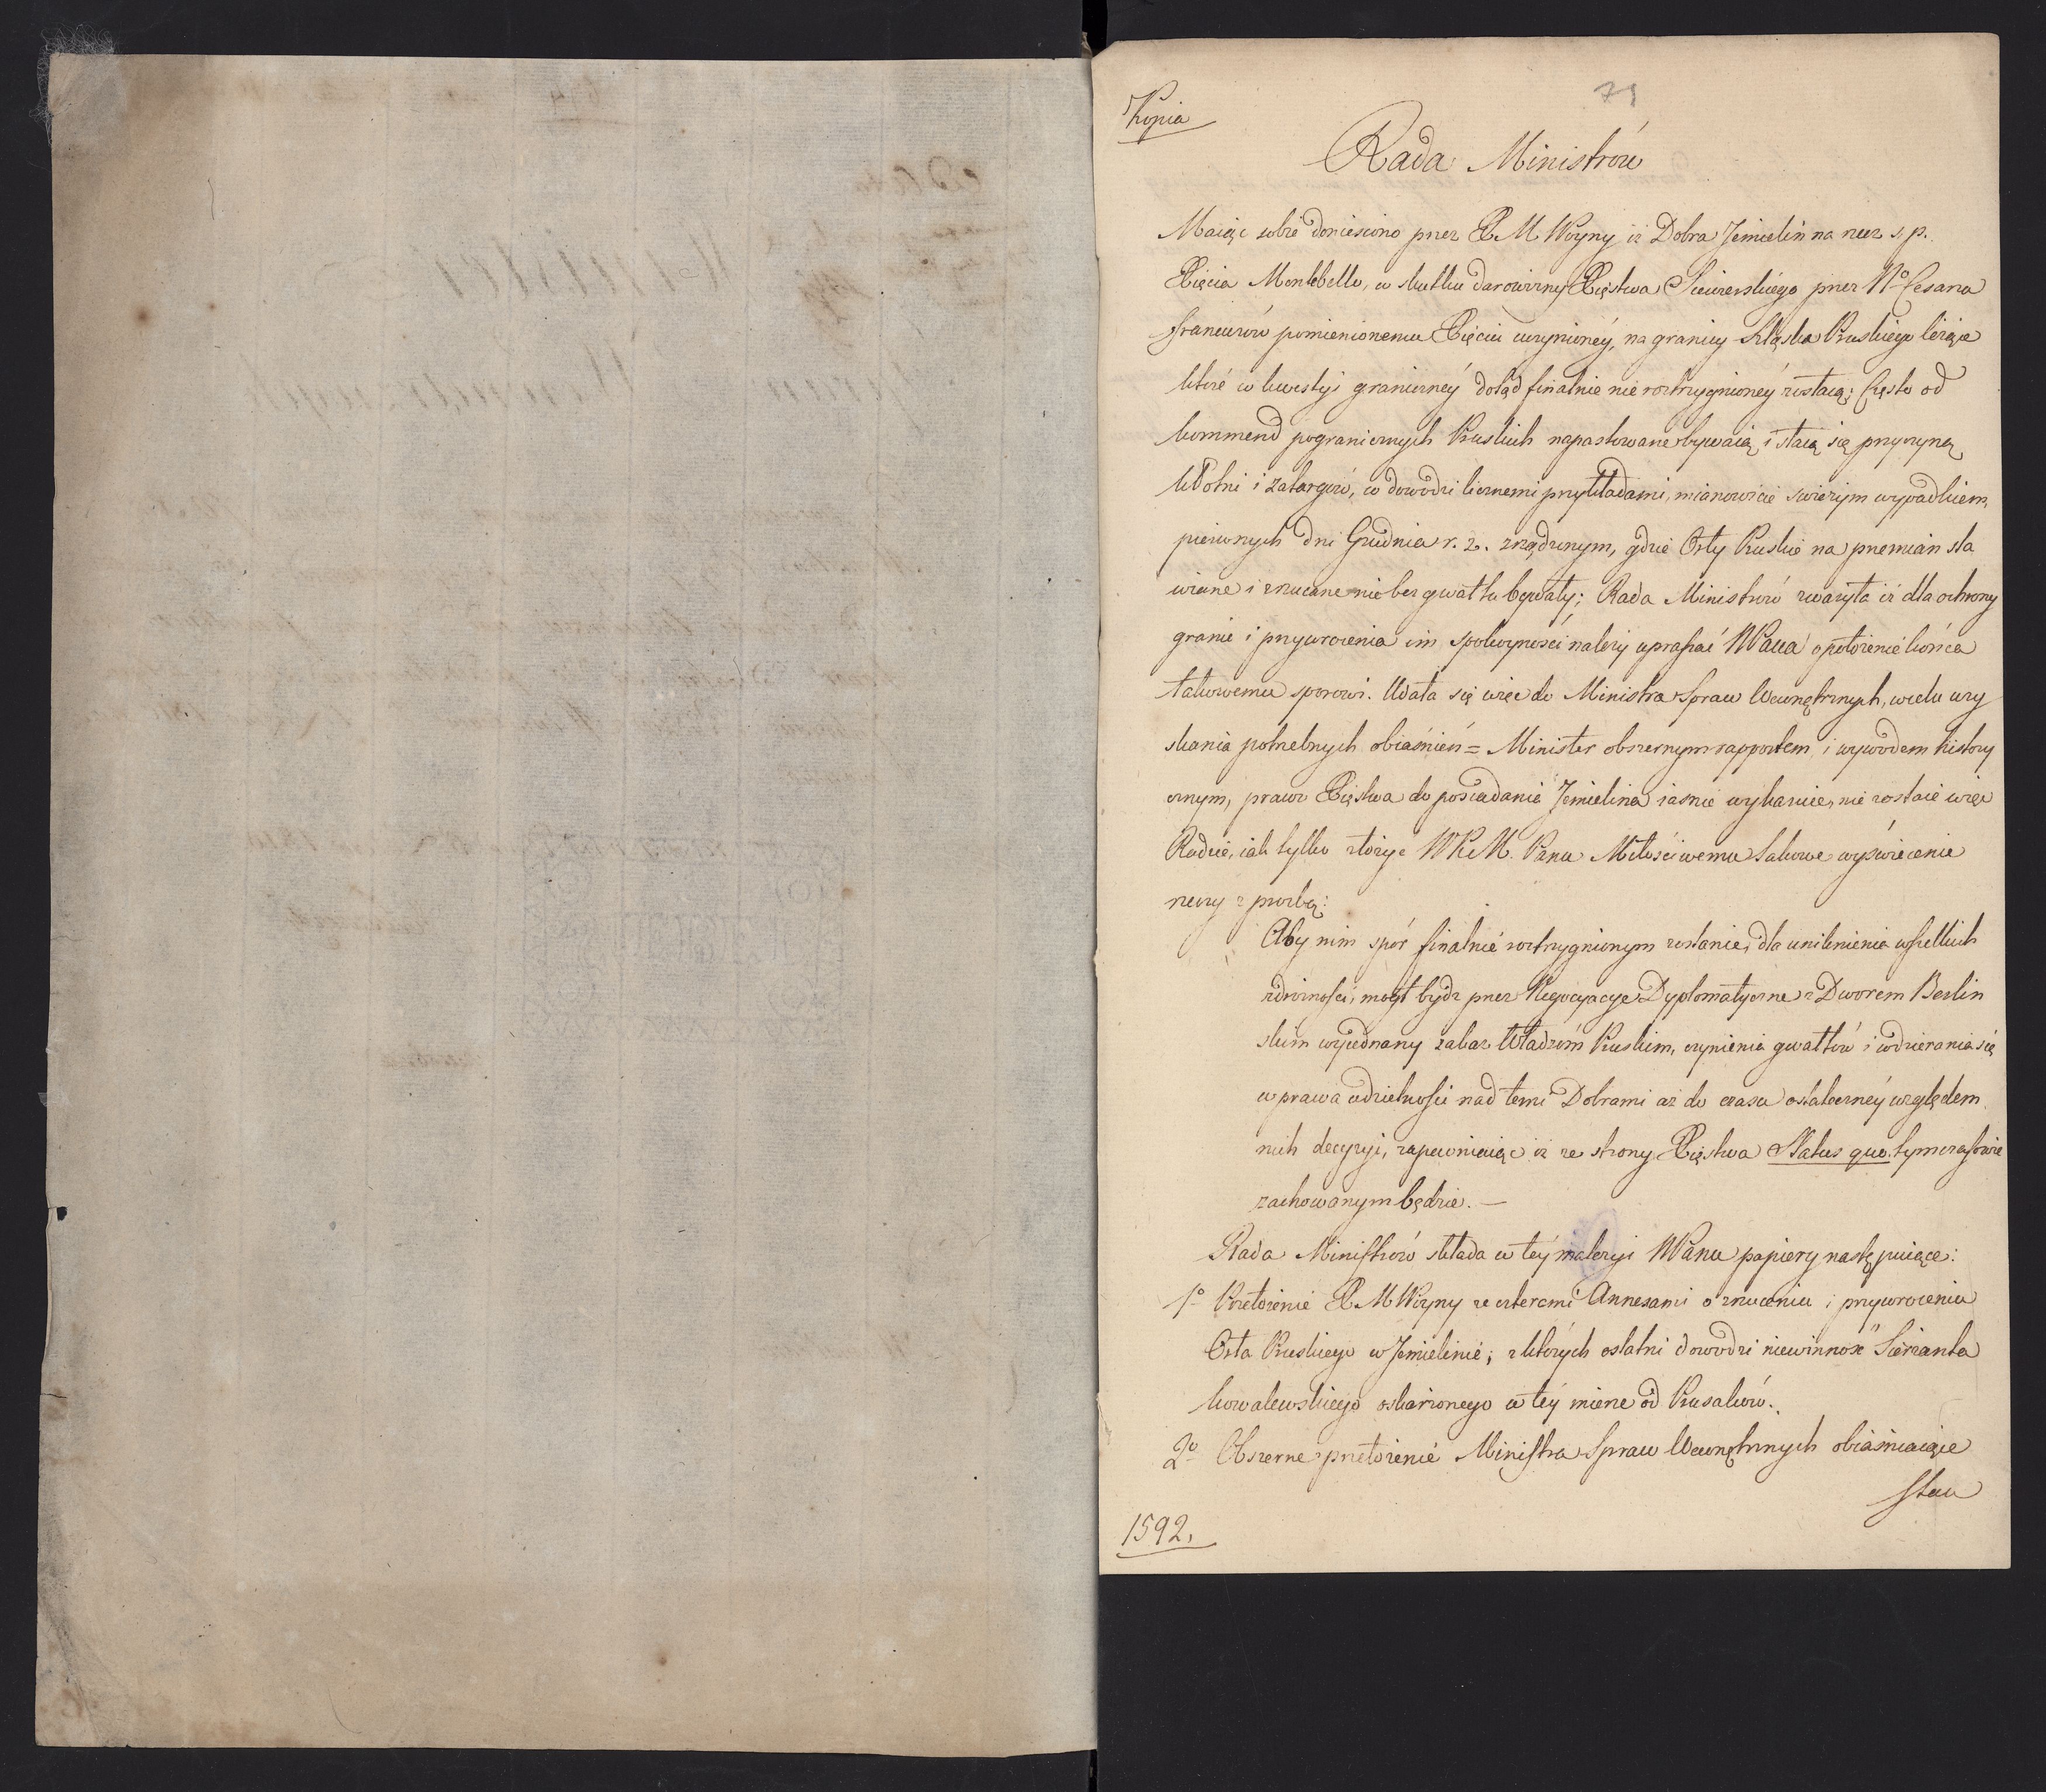 79
Kopia
Rada Ministrów
Maiąc sobie doniesiono przez X. M. Woyny iż Dobra Jemielin na rzecz ś. p.
Xięcia Montebello, w skutku darowizny Xięstwa Siewierskiego przez Nº Cesarza
francuzów pomienionemu Xięciu uczynioney, na granicy Szląska Pruskiego leżące
które w kwestyi graniczney dotąd finalnie nie roztrzygnioney zostaią; Często od
kommend pogranicznych Pruskich napastowane bywaią i staią się przyczyną
kłótni i zatargów, co dowodzi licznemi przykładami, mianowicie swieżym wypadkiem,
pierwszych dni Grudnia r. z. zrządzonym, gdzie Orły Pruskie na przemian sta
wiane i zrzucane nie bez gwałtu bywały; Rada Ministrów zważyła iż dla ochrony
granic i przywrócenia im spokoyności należy upraszać WPana o położenie końca
takowemu sporowi. Udała się więc do Ministra Spraw Wewnętrznych, w celu uzy
skania potrzebnych obiaśnień = Minister obszernym rapportem, i wywodem history
cznym, prawo Xięstwa do posiadania Jemielina iasnie wykazuie, nie zostaie więc
Radzie, iak tylko złożyć WKM. Panu Miłościwemu takowe wyświecenie
rzeczy z proźbą:
Aby nim spór finalnie roztrzygnionym zostanie, dla uniknienia wszelkich
zdrożności, mógł bydź przez Negocyacye Dyplomatyczne z Dworem Berlin
skim wyiednany zakaz Władzóm Pruskim, czynienia gwałtów i wdzierania się
w prawa udzielności nad temi Dobrami aż do czasu ostateczney względem
nich decyzyi, zapewniaiąc iż ze strony Xięstwa Status quo tymczasowie
zachowanym będzie. —
Rada Ministrów składa w tey materyi WPanu papiery następuiące:
1º Przełożenie X M Woyny ze czterema Annexami o zrzuceniu i przywroceniu
Orła Pruskiego w Jemielinie; z których ostatni dowodzi niewinność Sierżanta
Kowalewskiego oskarżonego w tey mierze od Prusaków.
2º Obszerne przełożenie Ministra Spraw Wewnętrznych obiaśniaiące
stan
1592.